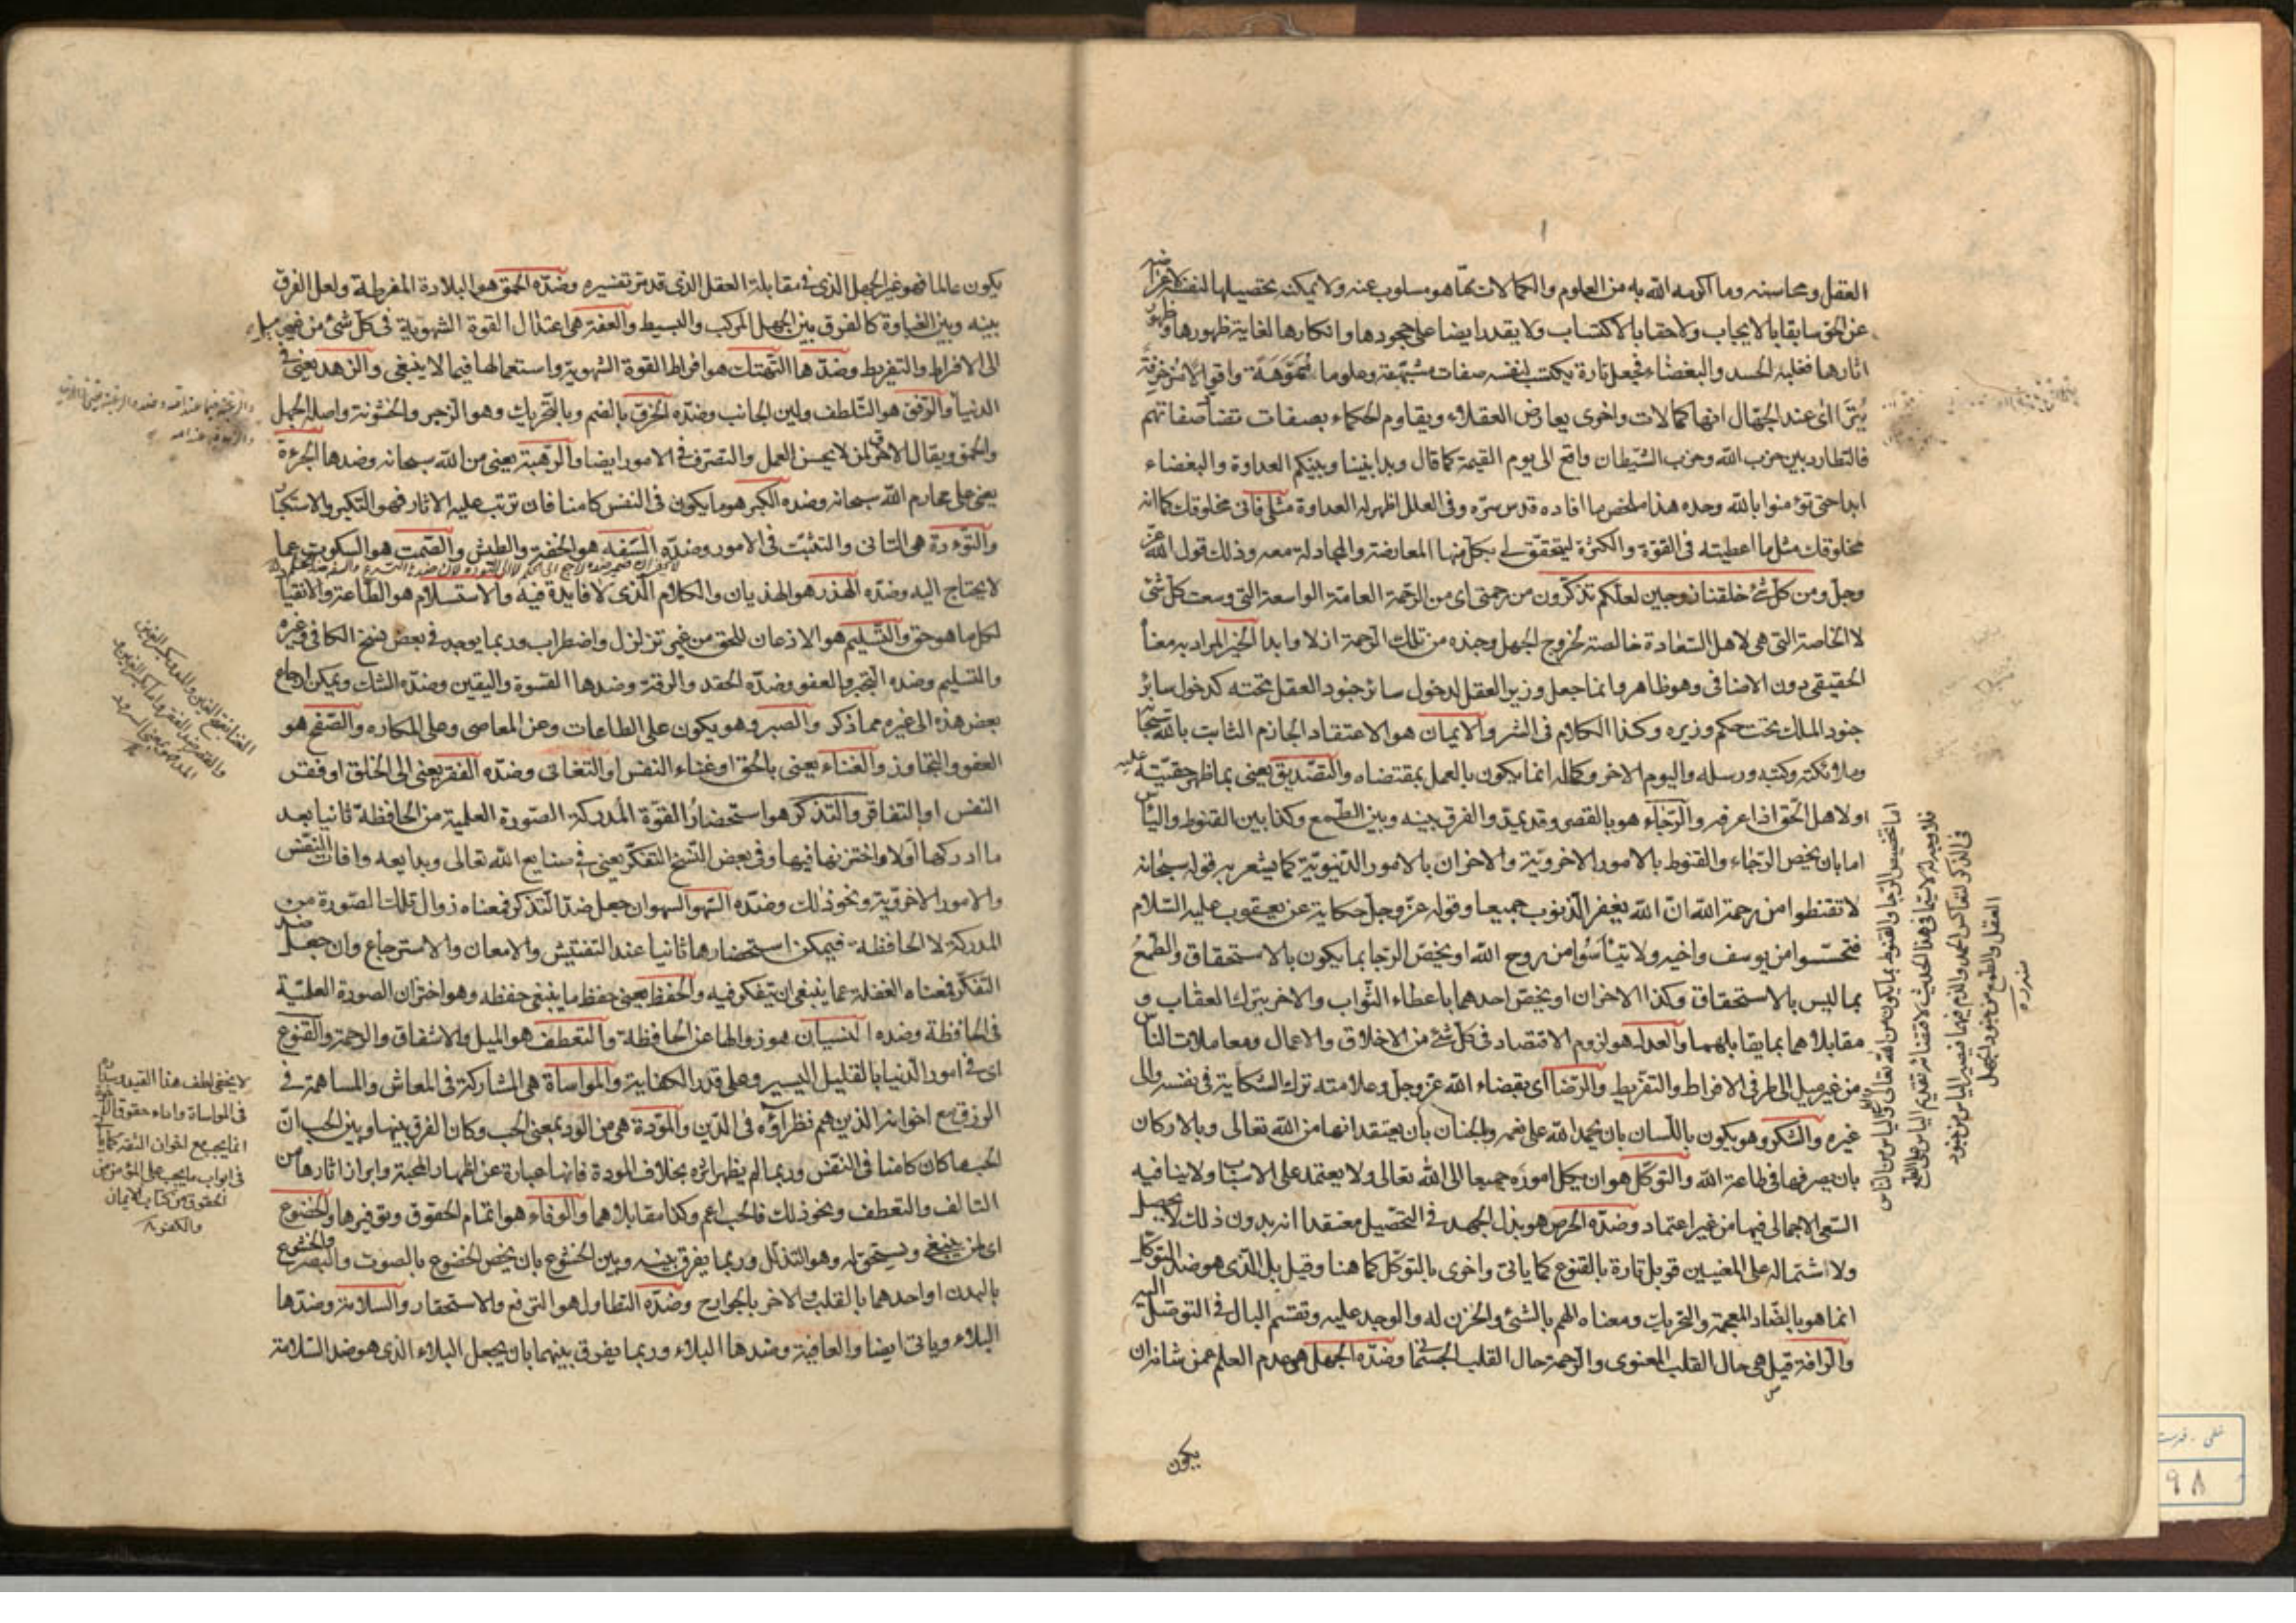 العقل ومحاسنه وما اكرمه الله به من العلوم والكمالات مما هو مسلوب عنه ولا يمكنه تحصيلها لنفسه
عن الحق سابقا بالايجاب ولاحقا بالاكتساب ولا يقدر ايضا على جحودها وانكارها لغاية ظهورها وظهور
اثارها فغلبه الحسد والبغضاء فجعل تارة يكتسب لنفسه صفات مشبهة وعلوما مموهة واقوالا مزخرفة
يترااى عند الجهال انها كمالات واخرى يعارض العقلاء ويقاوم الحكماء بصفات تضاد صفاتهم
فالتطارد بين حزب الله وحزب الشيطان واقع الى يوم القيمة كما قال وبدا بيننا وبينكم العداوة والبغضاء
ابدا حتى تؤمنوا بالله وحده هذا ملخص ما افاده قدس سره وفى العلل اظهر له العداوة مثلى فانى مخلوقك كما انه
مخلوقك مثل ما اعطيته فى القوة والكثرة ليتحقق لى بكل منها المعارضة والمجادلة معه وذلك قول الله عز
وجل ومن كل شئ خلقنا زوجين لعلكم تذكرون من رحمتى اى من الرحمة العامة الواسعة التى وسعت كل شئ
لا الخاصة التى هى لاهل السعادة خالصة لخروج الجهل وجنده من تلك الرحمة ازلا وابدا الخير المراد به معناه
الحقيقى دون الاضافى وهو ظاهر وانما جعل وزير العقل لدخول سائر جنود العقل تحته كدخول سائر
جنود الملك تحت حكم وزيره وكذا الكلام فى الشر والايمان هو الاعتقاد الجازم الثابت بالله سبحانه
وملائكته وكتبه ورسله واليوم الاخر وكماله انما يكون بالعمل بمقتضاه والتصديق يعنى بما ظهر حقيته عليه
او لاهل الحق اذا عرفه والرجاء هو بالقصر وقد يمد والفرق بينه وبين الطمع وكذا بين القنوط والياس
اما بان يخص الرجاء والقنوط بالامور الاخروية والاخران بالامور الدنيوية كما يشعر به قوله سبحانه
لا تقنطوا من رحمة الله ان الله يغفر الذنوب جميعا وقوله عز وجل حكاية عن يعقوب عليه السلام
فتحسسوا من يوسف واخيه ولا تيأسوا من روح الله او يخص الرجا بما يكون بالاستحقاق والطمع
بما ليس بالاستحقاق وكذا الاخران او يخص احدهما باعطاء الثواب والاخر بترك العقاب و
مقابلاهما بما يقابلهما والعدل هو لزوم الاقتصاد فى كل شئ من الاخلاق والاعمال ومعاملات الناس
من غير ميل الى طرفى الافراط والتفريط والرضا اى بقضاء الله عز وجل وعلامته ترك الشكاية فى نفسه والى
غيره والشكر وهو يكون باللسان بان يحمد الله على نعمه وبالجنان بان يعتقد انها من الله تعالى وبالاركان
بان يصرفها فى طاعة الله والتوكل هو ان يكل اموره جميعا الى الله تعالى ولا يعتمد على الاسباب ولا ينافيه
السعى الاجمالى فيها من غير اعتماد وضده الحرص هو بذل الجهد فى التحصيل معتقدا انه بدون ذلك لا يحصل
ولاشتماله على المعنيين قوبل تارة بالقنوع كما ياتى واخرى بالتوكل كما هنا وقيل بل الذى هو ضد التوكل
انما هو بالضاد المعجمة والتحريك ومعناه الهم بالشئ والحزن له والوجد عليه وتقسم البال فى التوصل اليه
والرافة قيل هى حال القلب المعنوى والرحمة حال القلب الجسمانى وضده الجهل هو عدم العلم عمن شانه ان
يكون
اما تخصيص الرجا والقنوط بما يكون من الله تعالى والطمع والياس بما يكون من الناس
العقل والطمع من جنود الجهل
منه ره
يكون عالما فهو غير الجهل الذى فى مقابلة العقل الذى قد مر تفسيره وضده الحمق هو البلادة المفرطة ولعل الفرق
بينه وبين الغباوة كالفرق بين الجهل المركب والبسيط والعفة هى اعتدال القوة الشهوية فى كل شئ من غير ميل
الى الافراط والتفريط وضدها التهتك هو افراط القوة الشهوية واستعمالها فيما لا ينبغى والزهد يعنى فى
الدنيا والرفق هو التلطف ولين الجانب وضده الخرق بالضم وبالتحريك وهو الزجر والخشونة واصله الجهل
والحمق ويقال الاخرق لمن لا يحسن العمل والتصرف فى الامور ايضا والرهبة يعنى من الله سبحانه وضدها الجرءة
يعنى على محارم الله سبحانه وضده الكبر هو ما يكون فى النفس كامنا فان ترتب عليه الاثار فهو التكبر والاستكبار
والتؤدة هى التانى والتثبت فى الامور وضده السفه هو الخفة والطيش والصمت هو السكوت عما
لا يحتاج اليه وضده الهذر هو الهذيان والكلام الذى لا فايدة فيه والاستسلام هو الطاعة والانقياد
لكل ما هو حق والتسليم هو الاذعان للحق من غير تزلزل واضطراب وربما يوجد فى بعض نسخ الكافى وغيره
والتسليم وضده التجبر والعفو وضده الحقد والرقة وضدها القسوة واليقين وضده الشك ويمكن ارجاع
بعض هذه الى غيره مما ذكر والصبر وهو يكون على الطاعات وعن المعاصى وعلى المكاره والصفح هو
العفو والتجاوز والغناء يعنى بالحق او غناء النفس او التغانى وضده الفقر يعنى الى الخلق او فقر
النفس او التفاقر والتذكر هو استحضار القوة المدركة الصورة العلمية من الحافظة ثانيا بعد
ما ادركها اولا واختزنها فيها وفى بعض النسخ التفكر يعنى فى صنايع الله تعالى وبدايعه وافات النفس
والامور الاخروية ونحو ذلك وضده السهو السهو ان جعل ضد التذكر فمعناه زوال تلك الصورة من
المدركة لا الحافظة فيمكن استحضارها ثانيا عند التفتيش والامعان والاسترجاع وان جعل ضد
التفكر فمعناه الغفلة عما ينبغى ان يتفكر فيه والحفظ يعنى حفظ ما ينبغى حفظه وهو اختزان الصورة العلمية
فى الحافظة وضده النسيان هو زوالها عن الحافظة والتعطف هو الميل والاشفاق والرحمة والقنوع
اى فى امور الدنيا بالقليل اليسير وعلى قدر الكفاية والمواساة هى المشاركة فى المعاش والمساهمة فى
الرزق مع اخوانه الذين هم نظراؤه فى الدين والمودة هى من الود بمعنى الحب وكان الفرق بينها وبين الحب ان
الحب ما كان كامنا فى النفس وربما لم يظهر اثره بخلاف المودة فانها عبارة عن اظهار المحبة وابراز اثارها من
التالف والتعطف ونحو ذلك فالحب اعم وكذا مقابلاهما والوفاء هو اتمام الحقوق وتوفيرها والخضوع
اى لمن ينبغى ويستحق له وهو التذلل وربما يفرق بينه وبين الخشوع بان يخص الخضوع بالصوت والبصر والخشوع
بالبدن او احدهما بالقلب والاخر بالجوارح وضده التطاول هو الترفع والاستحقار والسلامة وضدها
البلاء وياتى ايضا والعافية وضدها البلاء وربما يفرق بينهما بان يجعل البلاء الذى هو ضد السلامة
لا يخفى لطف هذا القيد
فى المواساة واداء حقوق
انما يجب مع اخوان الثقة كما ياتى
فى ابواب ما يجب على المؤمن من
الحقوق من كتاب الايمان
والكفر